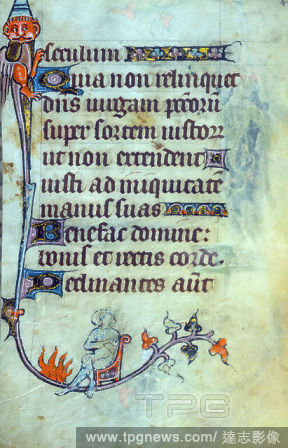 seculum
Quia non relinquet
dns uirgam peccorũ
super sortem iustorr
ut non extendent
iusti ad iniquitatẽ
manus suas
Benefac domine:
bonis et rectis corde.
Declinantes aũt
TPG
www.tpgnews.com / 達志影像